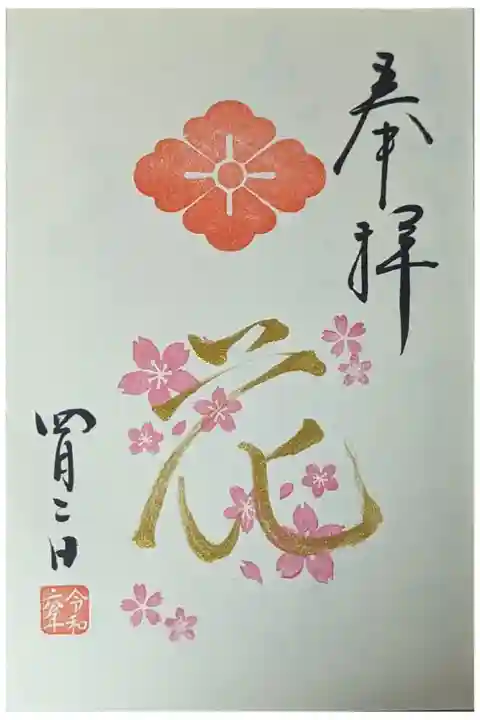 奉拝
花
四月二日
令和
六年